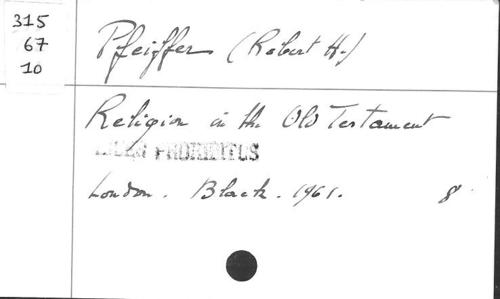 315
67
10
Pfeiffer (Robert H.)
Religion in the Old Testament
London. Black. 1961. 8